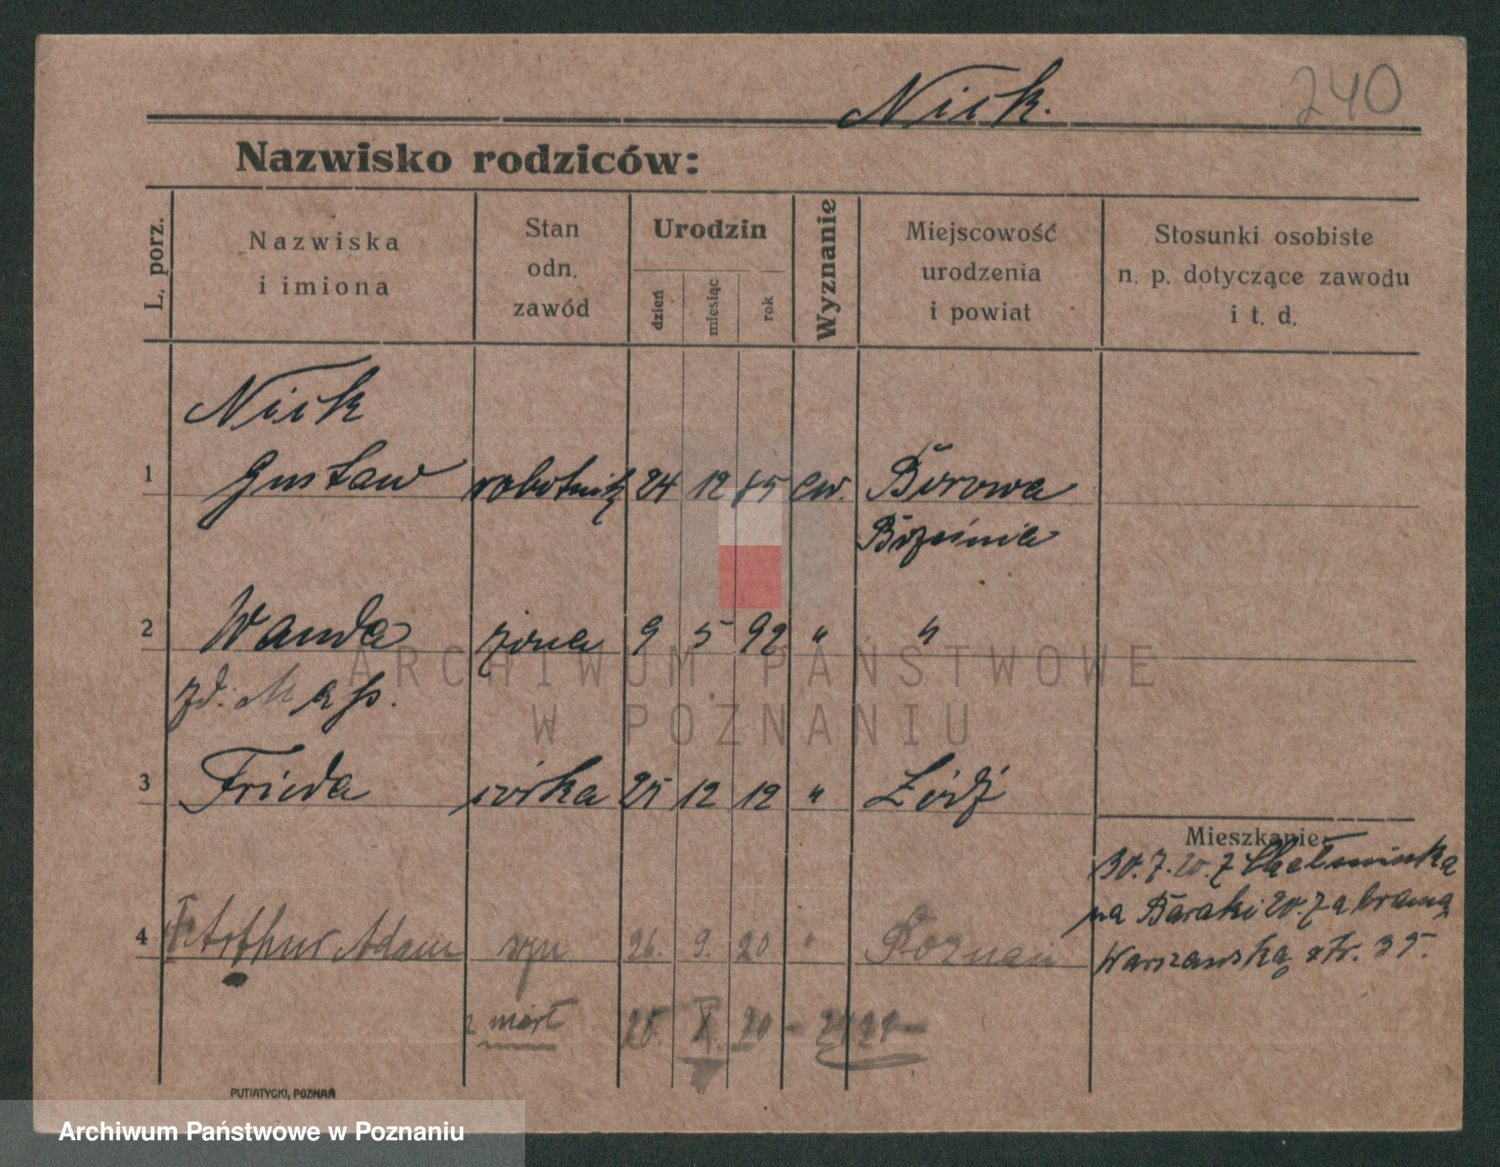 Nick.
240
Nazwisko rodziców:
L. porz.
Nazwiska
i imiona
Stan
odn.
zawód
Urodzin
dzień
miesiąc
rok
Wyznanie
Miejscowość
urodzenia
i powiat
Stosunki osobiste
n. p. dotyczące zawodu
i t. d.
Nick
1 Gustaw robotnik 24 12 85 ew. Borowa
Brzezinie
2 Wanda żona 9 5 92 " "
zd.
3 Frieda córka 25 12 12 " Łódź
Mieszkanie:
30.7.20. z Chełmińska
na Baraki 20. za bramą
Warszawską str. 35.
4 Arthur Adam syn 26. 9. 20 " Poznań
zmarł 25. X. 20 -
PUTIATYCKI, POZNAŃ
ARCHIWUM PAŃSTWOWE
W POZNANIU
Archiwum Państwowe w Poznaniu